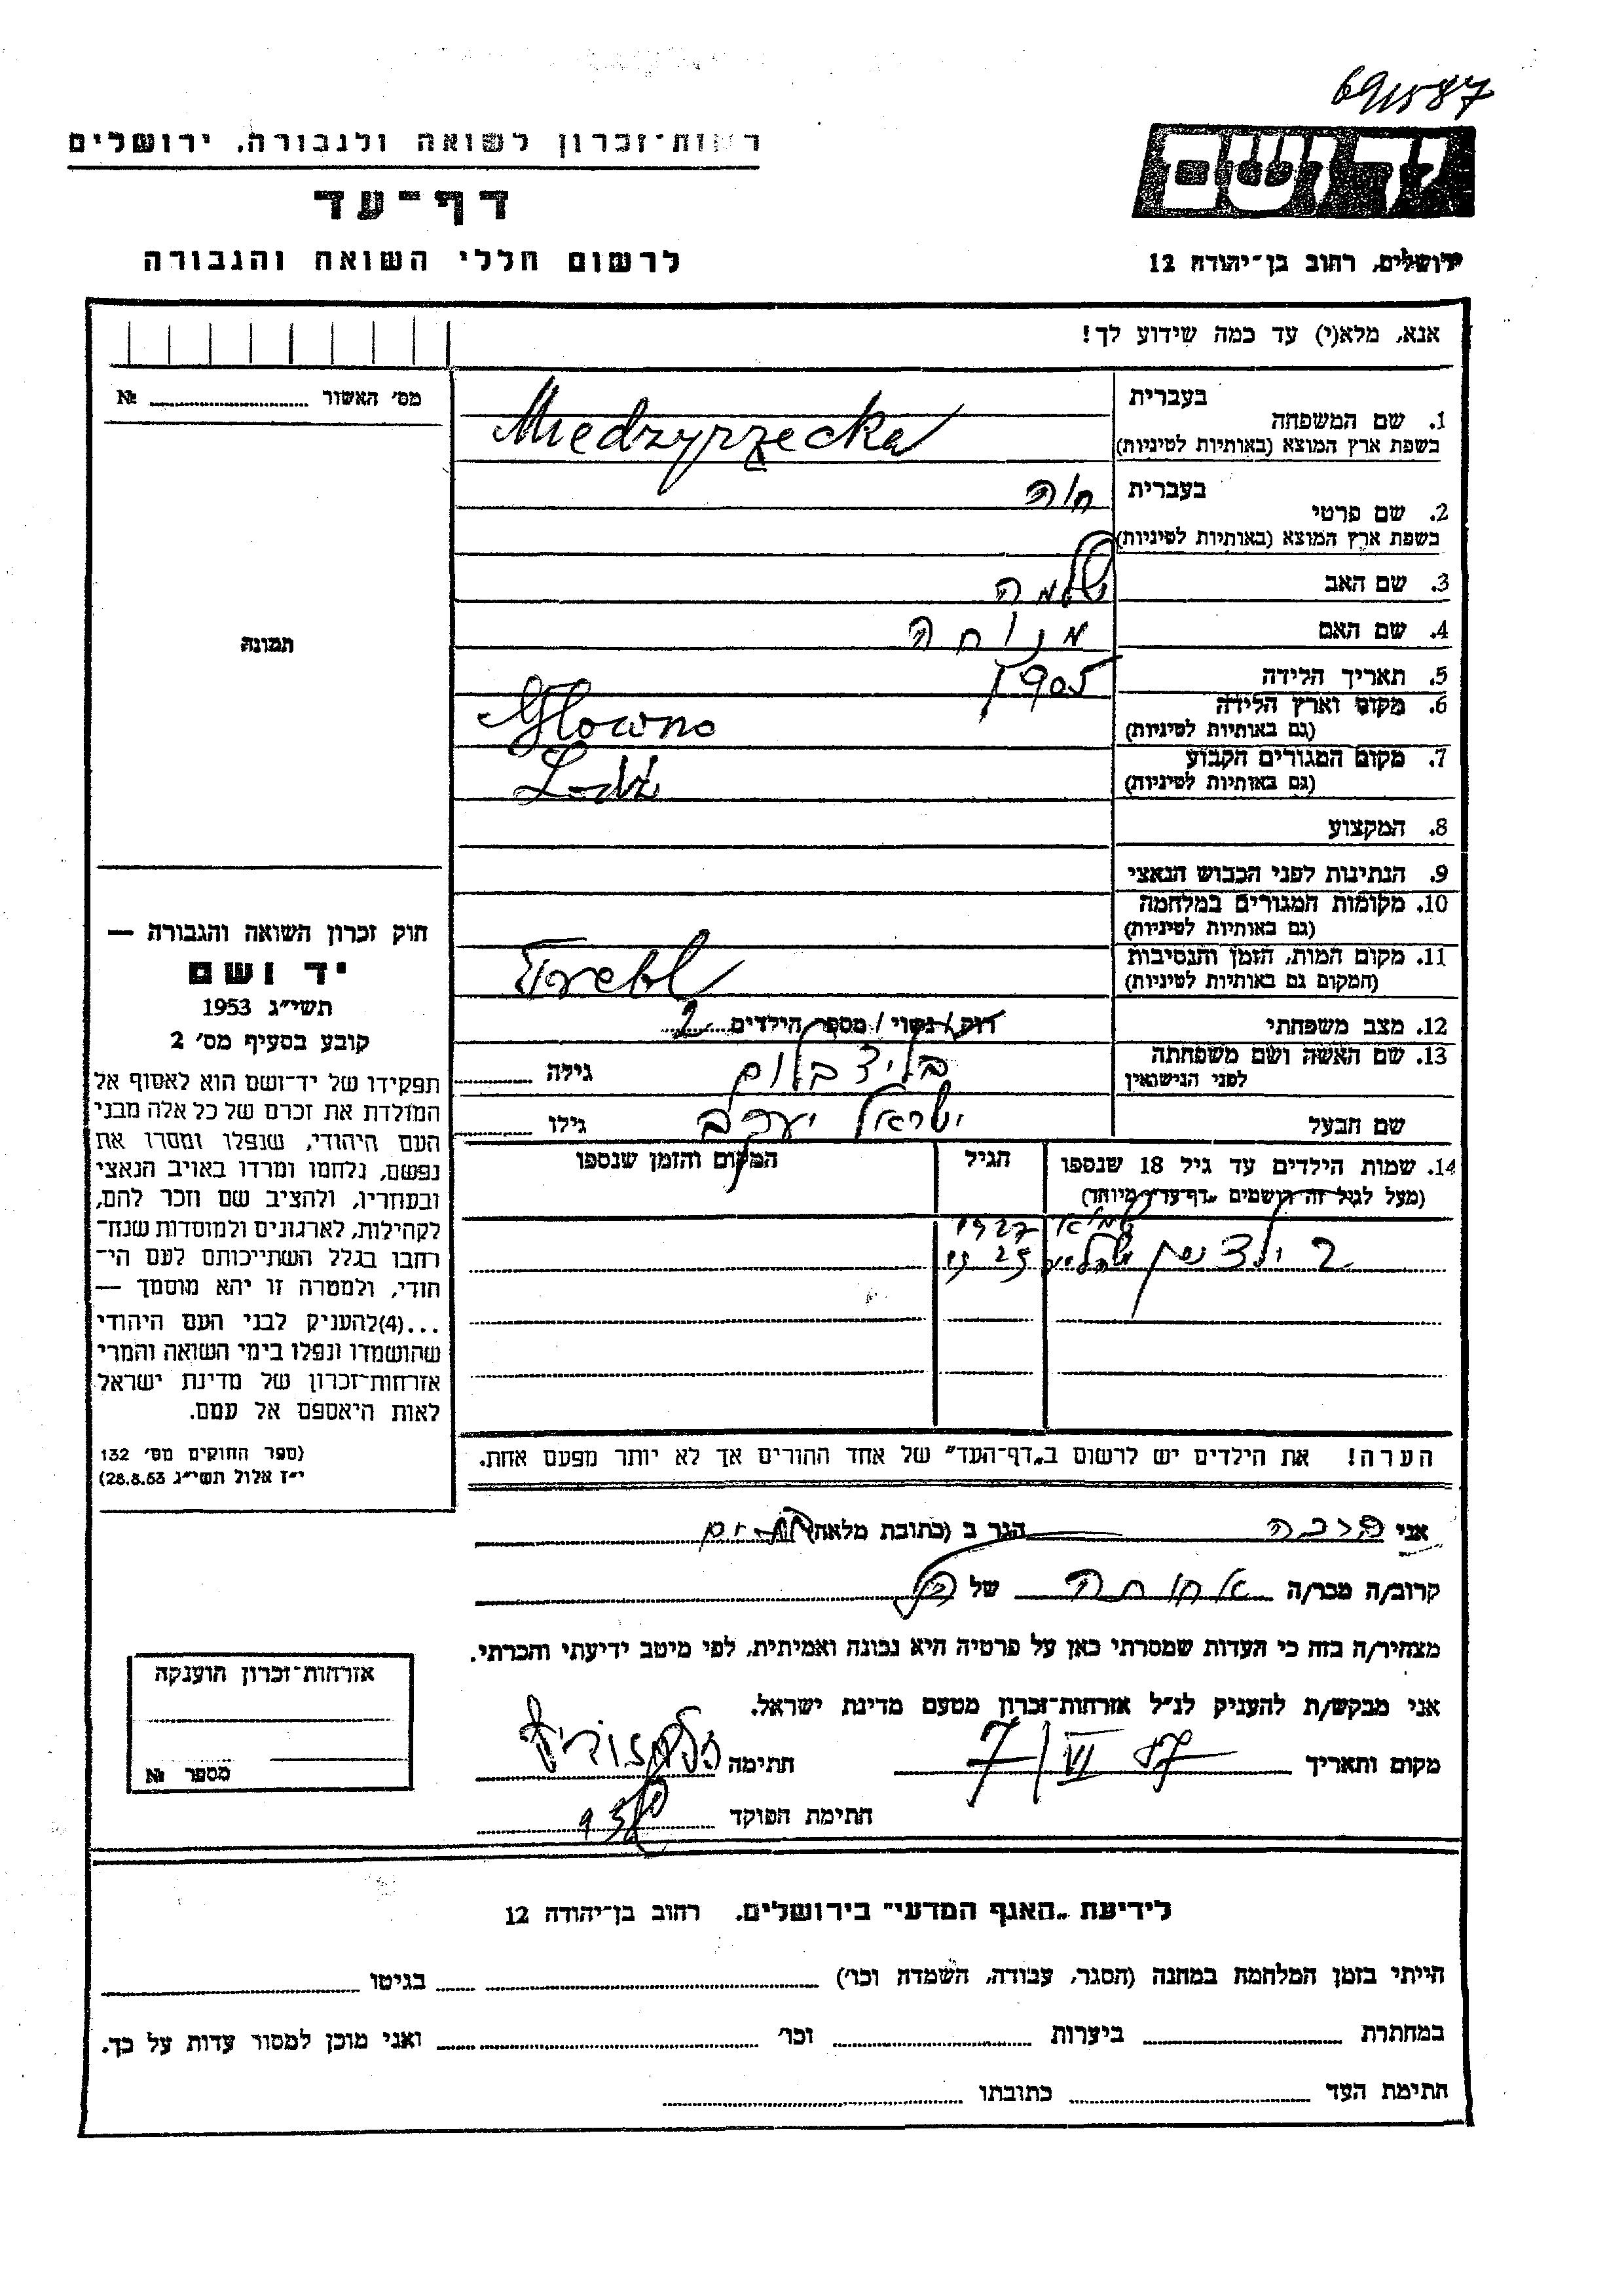 69/1587
רשות־זכרון לשואה ולגבורה. ירושלים
דף־עד
לרשום חללי השואה והגבורה
ידושם
ירושלים, רחוב בן־יהודה 12
אנא, מלא(י) עד כמה שידוע לך!
מס׳ האשור № 
1. שם המשפחה
בעברית
בשפת ארץ המוצא (באותיות לטיניות)
Miedzyrzecka
2. שם פרטי
בעברית
חוה
בשפת ארץ המוצא (באותיות לטיניות)
3. שם האב
שלמה
4. שם האם
מנוחה
5. תאריך הלידה
1905
6. מקום וארץ הלידה
(גם באותיות לטיניות)
Glowno
7. מקום המגורים הקבוע
(גם באותיות לטיניות)
Lodz
8. המקצוע
9. הנתינות לפני הכבוש הנאצי
10. מקומות המגורים במלחמה
(גם באותיות לטיניות)
11. מקום המות, הזמן והנסיבות
(המקום גם באותיות לטיניות)
Trebl
12. מצב משפחתי
רוק / נשוי / מספר הילדים 2
13. שם האשה ושם משפחתה
לפני הנישואין
גילה
שם הבעל
ישראל יעקב
גילו
14. שמות הילדים עד גיל 18 שנספו
(מעל לגיל זה רושמים „דף־עד״ מיוחד)
הגיל
המקום והזמן שנספו
1927
2 ילדים
1925
הערה! את הילדים יש לרשום ב„דף־העד״ של אחד ההורים אך לא יותר מפעם אחת.
תמונה
חוק זכרון השואה והגבורה —
יד ושם
תשי״ג 1953
קובע בסעיף מס׳ 2
תפקידו של יד־ושם הוא לאסוף אל
המולדת את זכרם של כל אלה מבני
העם היהודי, שנפלו ומסרו את
נפשם, נלחמו ומרדו באויב הנאצי
ובעוזריו, ולהציב שם וזכר להם,
לקהילות, לארגונים ולמוסדות שנח־
רחבו בגלל השתייכותם לעם הי־
חודי, ולמטרה זו יהא מוסמך —
...(4)להעניק לבני העם היהודי
שהושמדו ונפלו בימי השואה והמרי
אזרחות־זכרון של מדינת ישראל
לאות היאספם אל עמם.
(ספר החוקים מס׳ 132
י״ז אלול תשי״ג 28.8.53)
אני הגר ב (כתובת מלאה)
קרוב/ה מכר/ה אחותה של
מצהיר/ה בזה כי העדות שמסרתי כאן על פרטיה היא נכונה ואמיתית, לפי מיטב ידיעתי והכרתי.
אני מבקש/ת להעניק לנ״ל אזרחות־זכרון מטעם מדינת ישראל.
מקום ותאריך 7/VI 57 חתימה
חתימת הפוקד
אזרחות־זכרון הוענקה
מספר №
לידיעת „האגף המדעי״ בירושלים. רחוב בן־יהודה 12
הייתי בזמן המלחמה במחנה (הסגר, עבודה, השמדה וכו׳) בגיטו
במחתרת ביערות וכו׳ ואני מוכן למסור עדות על כך.
חתימת העד כתובתו